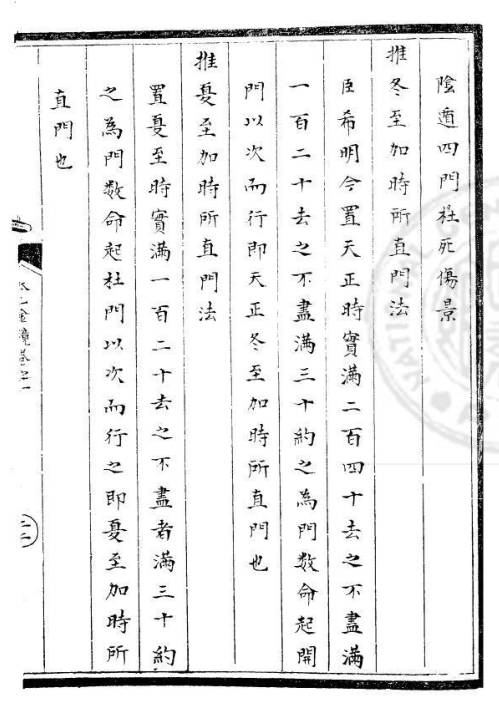 陰遁四門杜死傷景
推冬至加時所直門法
臣希明今置天正時實滿二百四十去之不盡滿
一百二十去之不盡滿三十約之為門数命起開
門以次而行即天正冬至加時所直門也
推夏至加時所直門法
置夏至時實滿一百二十去之不盡者滿三十約
之為門数命起杜門以次而行之即夏至加時所
直門也
金鏡卷之一